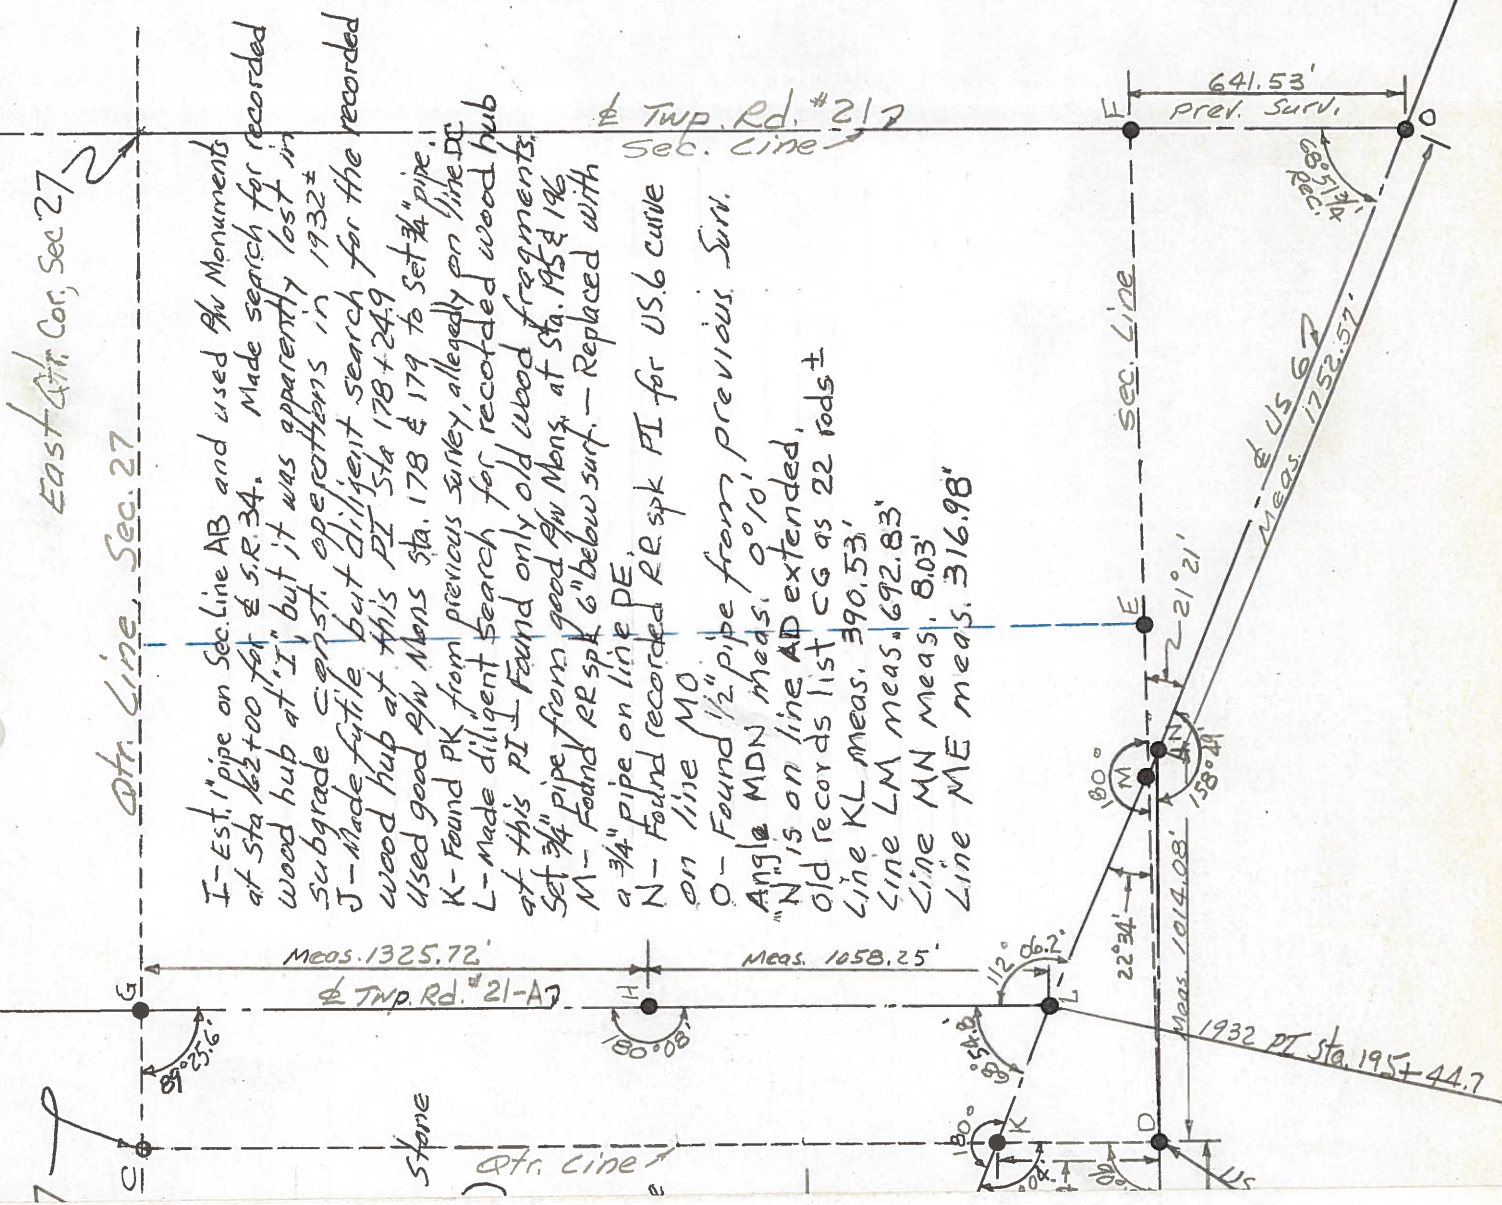 East Qtr. Cor., Sec 27
Qtr. Line Sec. 27
I - Est. 1" pipe on Sec. Line AB and used R/W Monuments
at Sta 162+00 for ℄ S.R. 34. Made search for recorded
wood hub at "I", but it was apparently lost in
subgrade const. operations in 1932±
J - Made futile but diligent search for the recorded
wood hub at this PI Sta 178+24.9
Used good R/W Mons Sta. 178 & 179 to Set 3/4" pipe.
K - Found PK from previous survey, allegedly on line DC.
L - Made diligent search for recorded wood hub
at this PI - Found only old wood fragments.
Set 3/4" pipe from good R/W Mons. at Sta. 195 & 196
M - Found RR spk 6" below surf. - Replaced with
a 3/4" pipe on line DE.
N - Found recorded RR spk PI for US.6 curve
on line MO
O - Found 1/2" pipe from previous Surv.
Angle MDN meas. 0°10'
"N" is on line AD extended.
Old records list CG as 22 rods±
Line KL meas. 390.53'
Line LM meas. 692.83'
Line MN meas. 8.03'
Line ME meas. 316.98'
℄ Twp. Rd. #21
Sec. Line
F
641.53'
Prev. Surv.
O
68°51 3/4'
Rec.
Sec. Line
℄ US 6
Meas. 1752.57'
E
21°21'
N
M
180°
158°49'
22°34'
Meas 1014.08'
G
89°25.6'
Meas. 1325.72'
℄ Twp. Rd. #21-A
H
180°08'
Meas. 1058.25'
112°06.2'
L
1932 PI Sta. 195+44.7
C
Stone
Qtr. Line
180°
K
D
90°
US